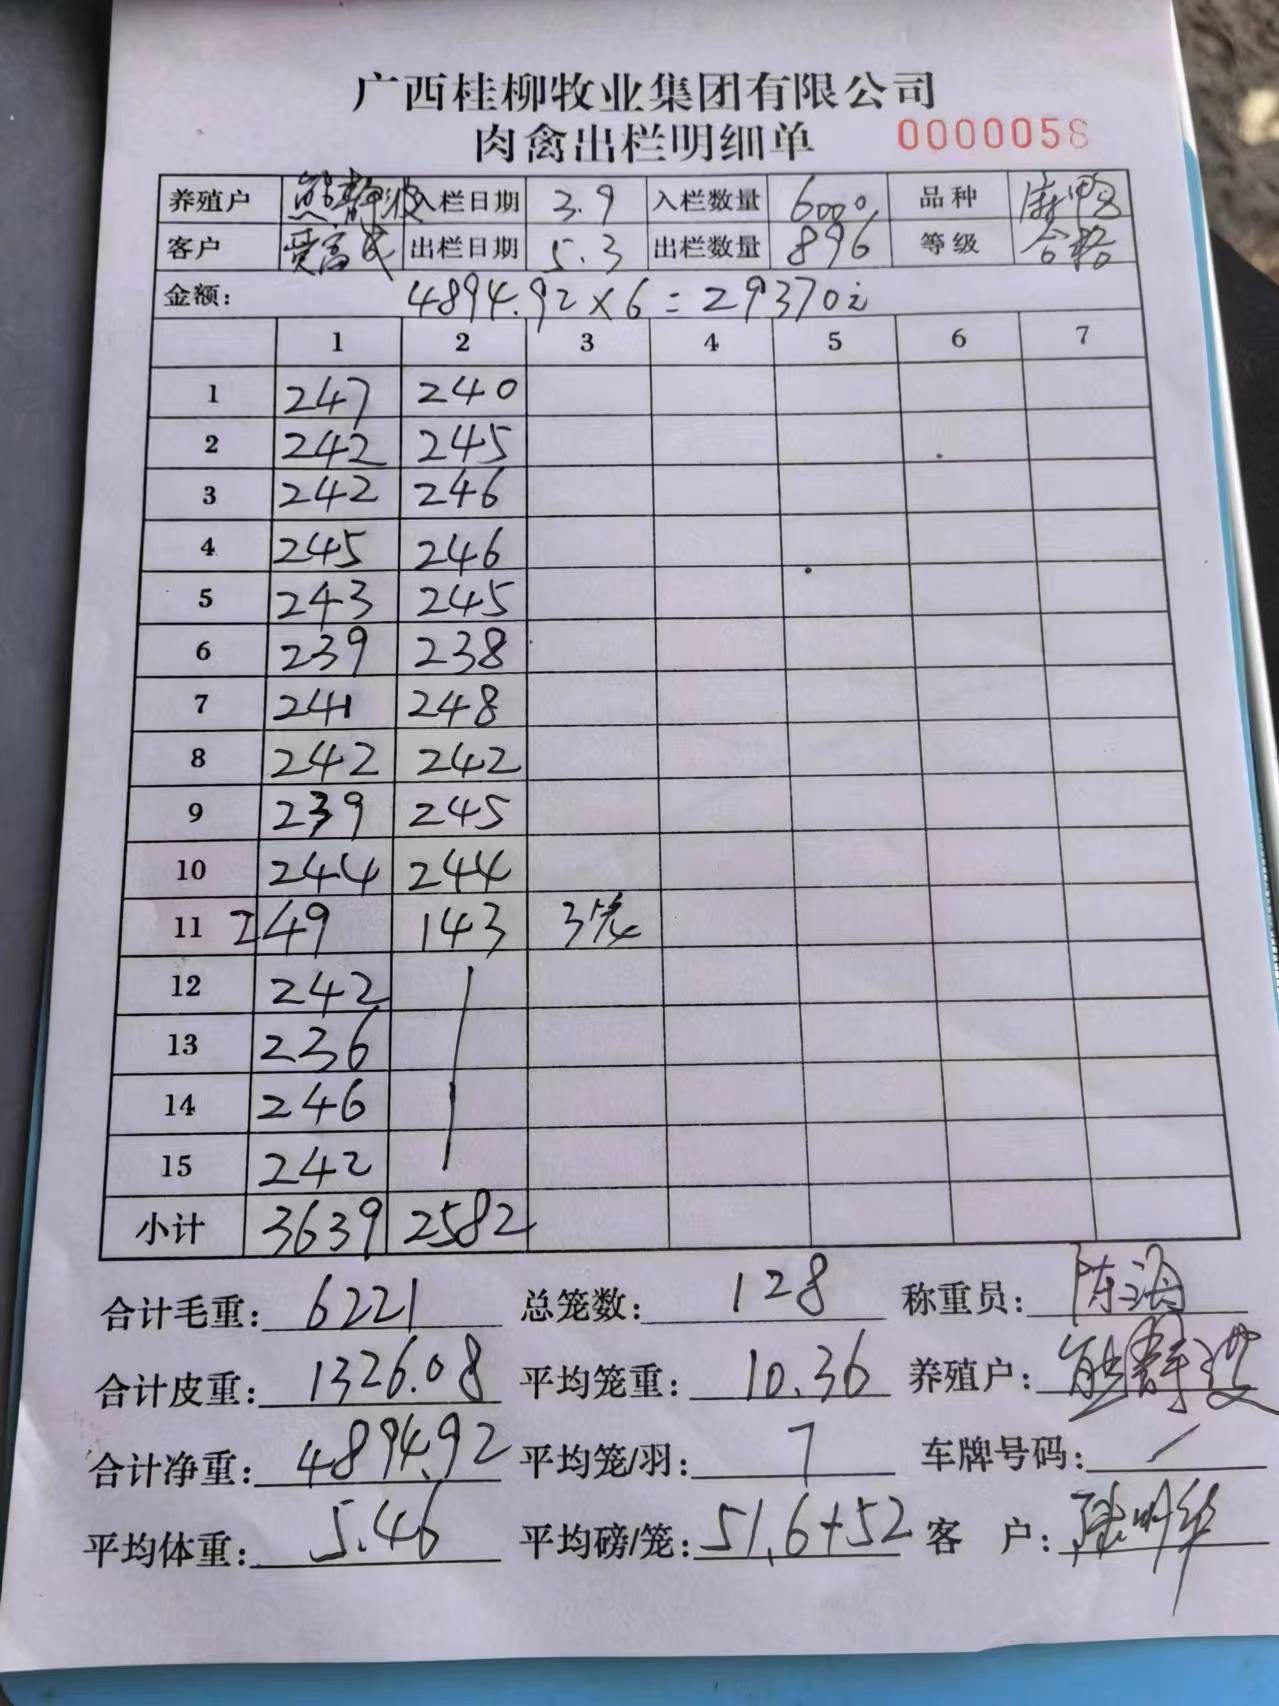 广西桂柳牧业集团有限公司
肉禽出栏明细单 0000058
养殖户 熊静波 入栏日期 3.9 入栏数量 6000 品种 麻鸭
客户 出栏日期 5.3 出栏数量 896 等级 合格
金额: 4894.92×6=29370
1 2 3 4 5 6 7
1 247 240
2 242 245
3 242 246
4 245 246
5 243 245
6 239 238
7 241 248
8 242 242
9 239 245
10 244 244
11 249 143 3笼
12 242
13 236
14 246
15 242
小计 3639 2582
合计毛重: 6221 总笼数: 128 称重员: 陈海
合计皮重: 1326.08 平均笼重: 10.36 养殖户: 熊静波
合计净重: 4894.92 平均笼/羽: 7 车牌号码: /
平均体重: 5.46 平均磅/笼: 51.6+52 客 户: